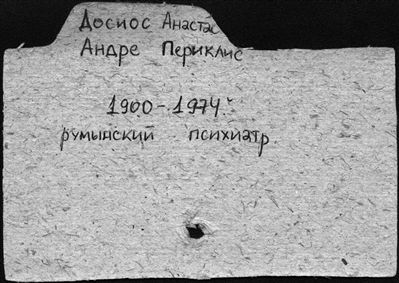 Досиос Анастас
Андре Периклис
1900-1974.
румынский психиатр